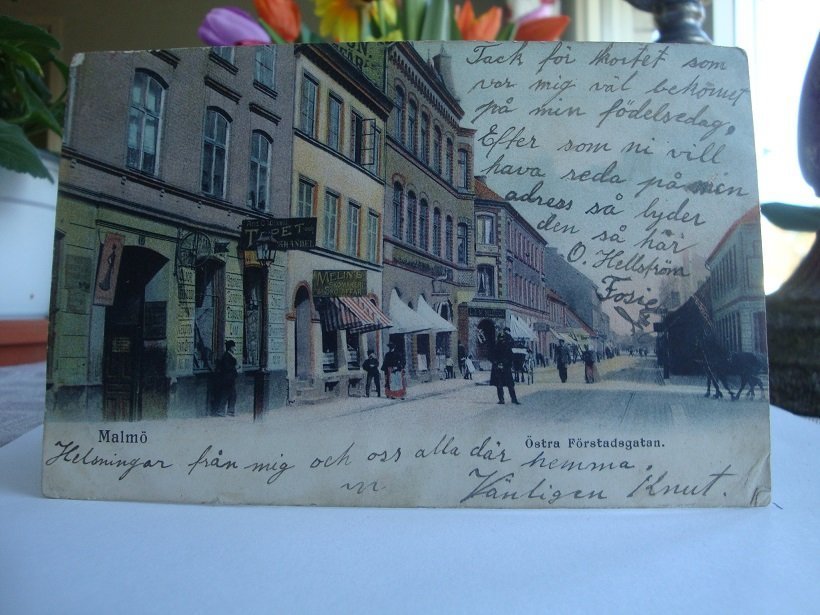 Tack för kortet som
var mig väl bekömet
på min födelsedag.
Efter som ni vill
hava reda på min
adress så lyder
den så här
O. Hellström
Fosie
TAPET
HANDEL
MELINS
Malmö
Östra Förstadsgatan.
Helsningar från mig och oss alla där hemma.
Vänligen Knut.